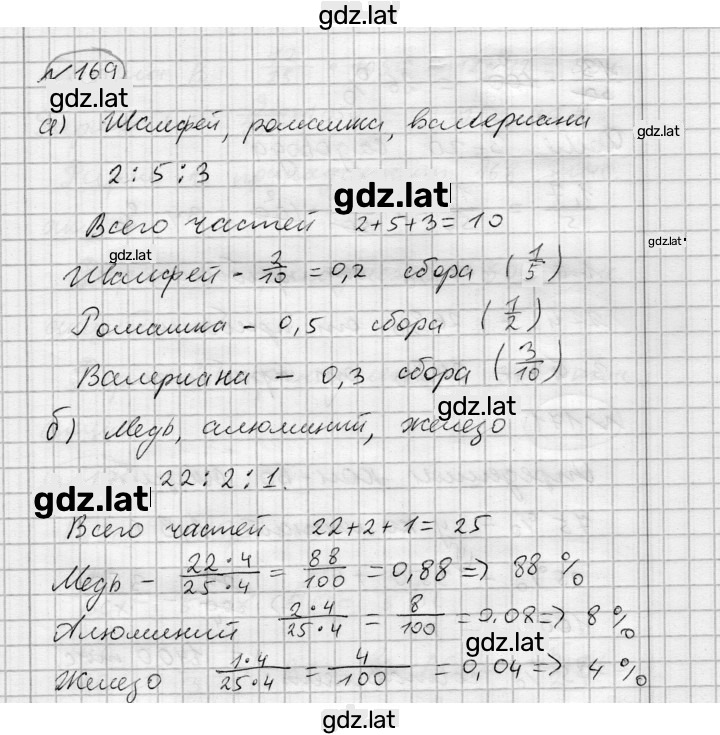 gdz.lat
№169
gdz.lat
а) Шалфей, ромашка, валериана
gdz.lat
2 : 5 : 3
gdz.lat
Всего частей 2+5+3= 10
gdz.lat
gdz.lat
Шалфей - 2/10 = 0,2 сбора (1/5)
Ромашка - 0,5 сбора (1/2)
Валериана - 0,3 сбора (3/10)
gdz.lat
б) Медь, алюминий, железо
22 : 2 : 1.
gdz.lat
Всего частей 22+2+1= 25
Медь - 22·4/25·4 = 88/100 = 0,88 => 88 %
Алюминий 2·4/25·4 = 8/100 = 0,08 => 8 %
gdz.lat
Железо 1·4/25·4 = 4/100 = 0,04 => 4 %
gdz.lat